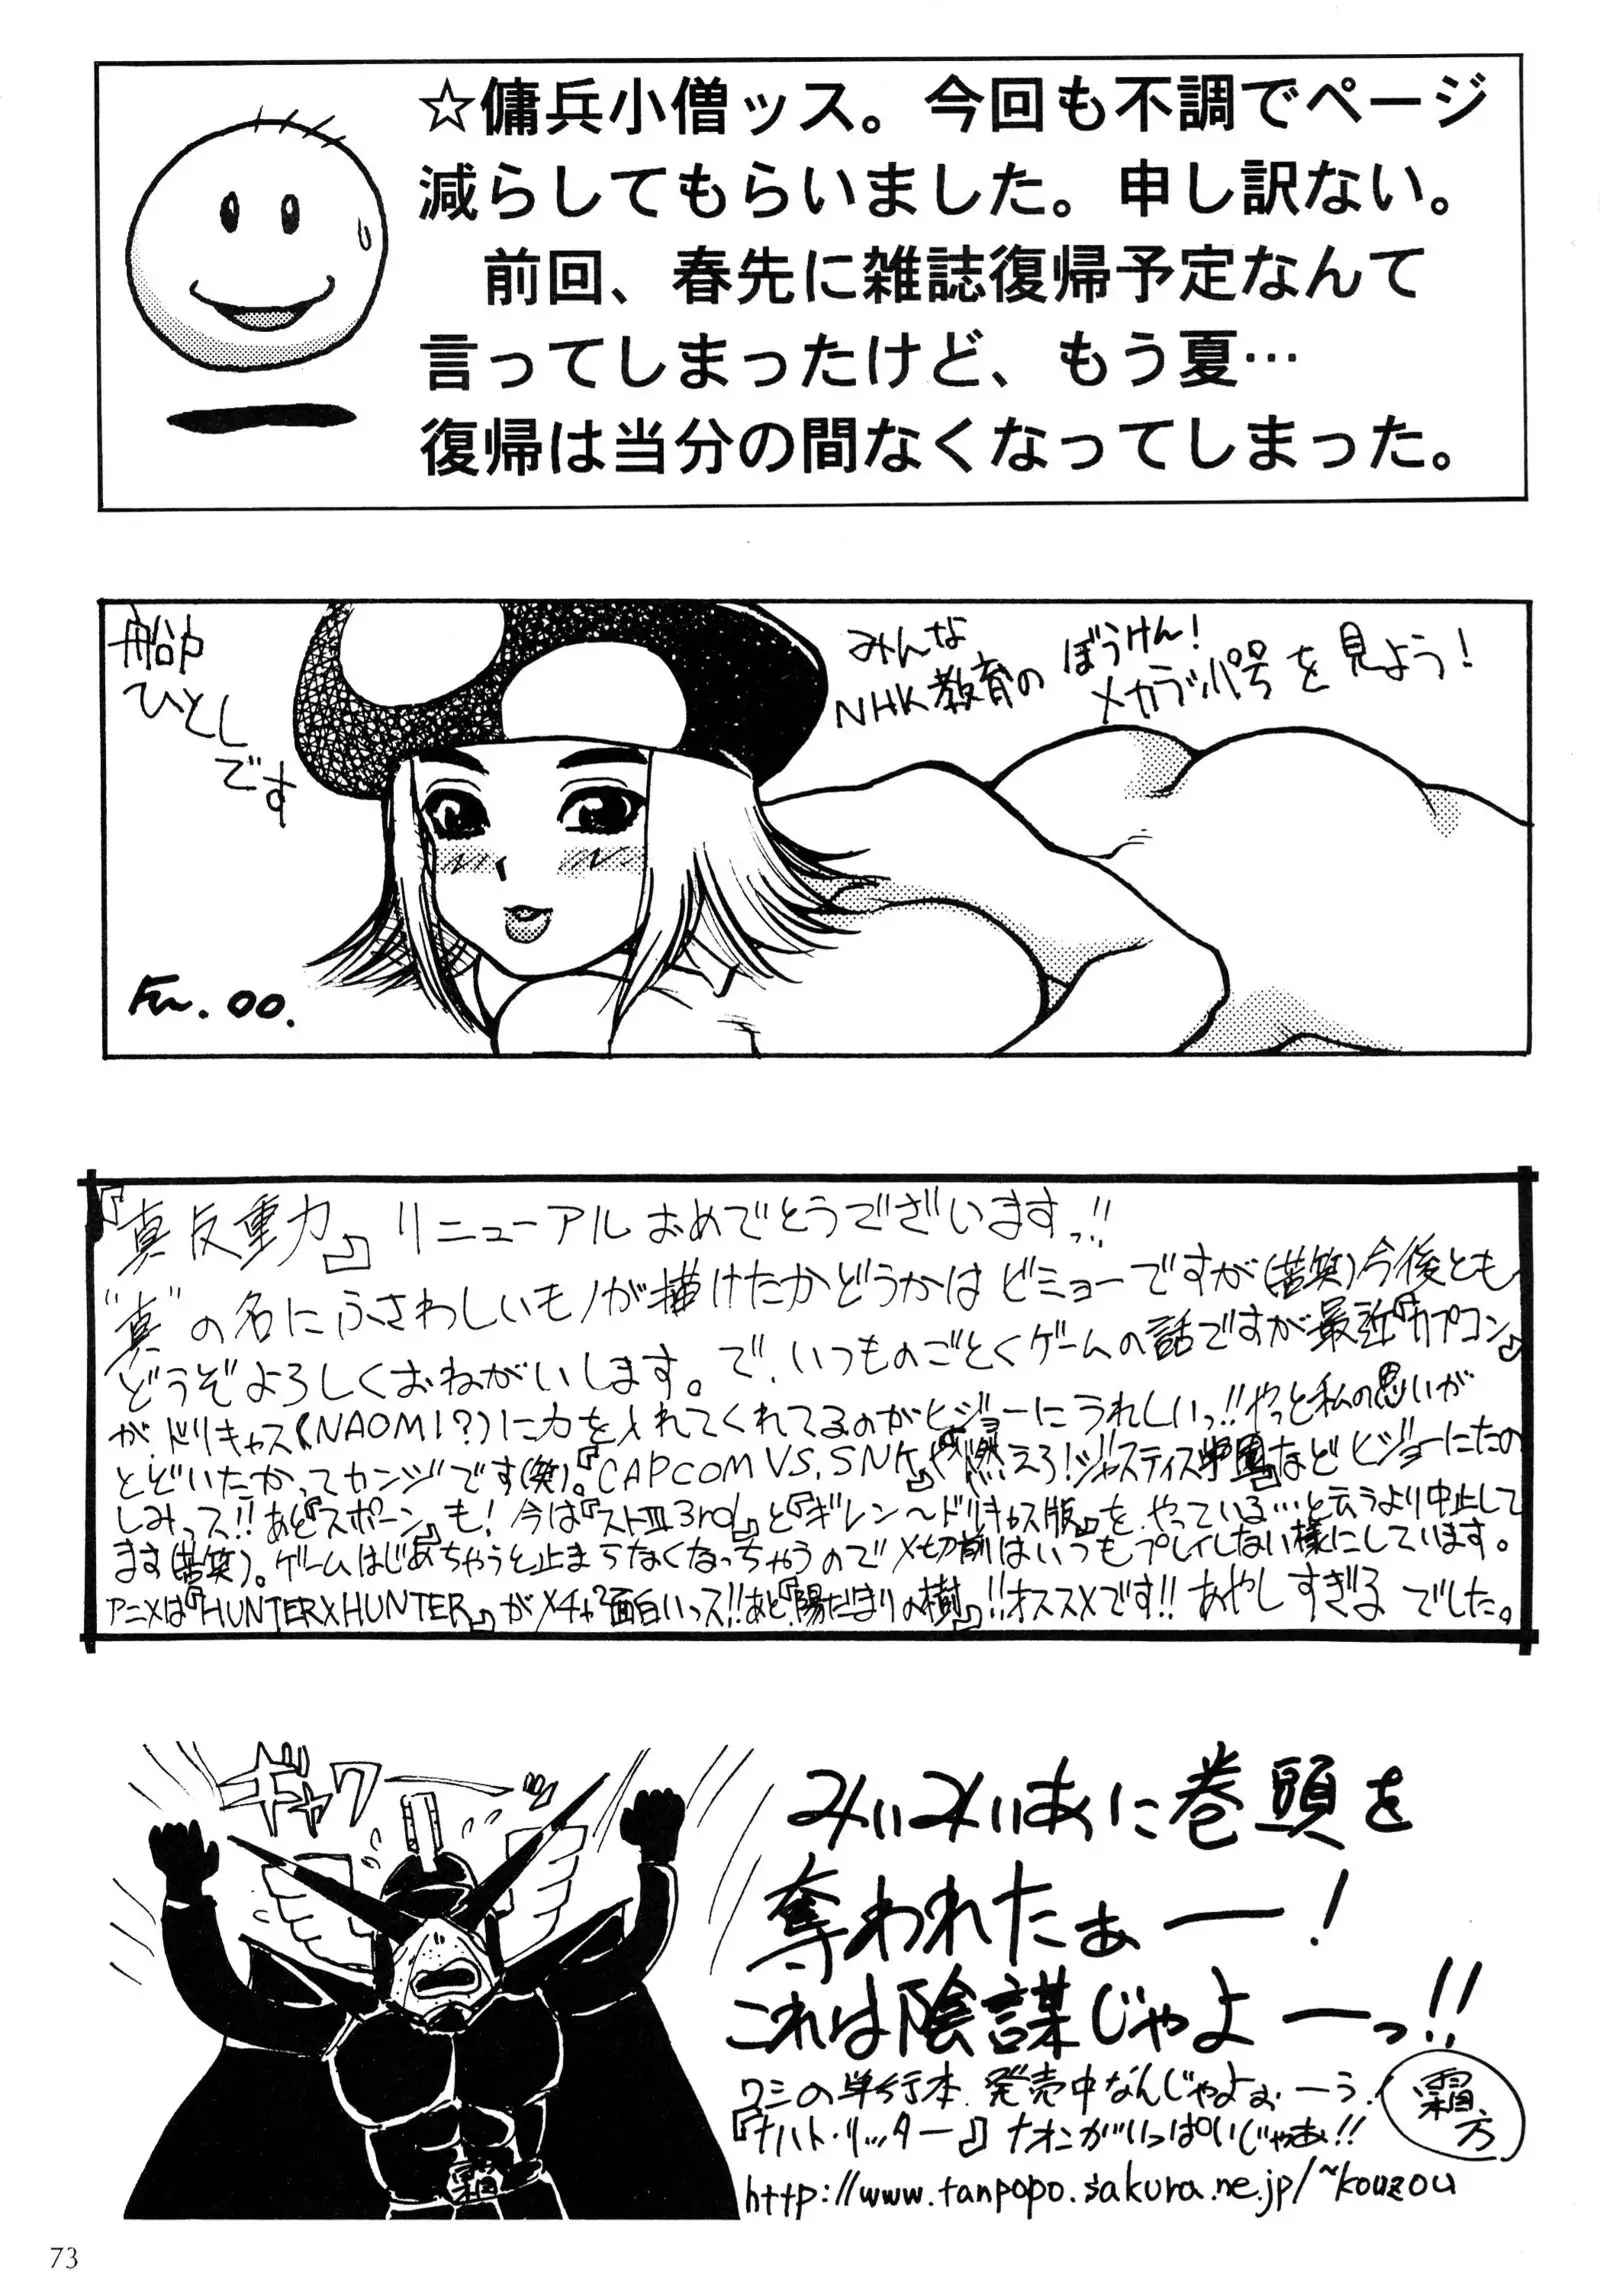 ☆傭兵小僧ッス。今回も不調でページ
減らしてもらいました。申し訳ない。
前回、春先に雑誌復帰予定なんて
言ってしまったけど、もう夏…
復帰は当分の間なくなってしまった。
船戸
ひとし
です
みんな
NHK教育の
ぼうけん!
メカラッパ号を見よう!
Fu. 00.
『真反重力』リニューアルおめでとうございますっ!!
"真"の名にふさわしいモノが描けたかどうかはビミョーですが(苦笑)今後とも
どうぞよろしくおねがいします。で、いつものごとくゲームの話ですが最近『カプコン』
が、ドリキャス(NAOMI?)に力を入れてくれてるのがヒジョーにうれしいっ!!やっと私の思いが
とどいたかってカンジです(笑)。『CAPCOM VS. SNK』や『燃えろ!ジャスティス学園』などヒジョーにたの
しみっス!!あと『スポーン』も!今は『ストIII 3rd』と『ギレン〜ドリキャス版』を、やっている…と云うより中止して
ます(苦笑)。ゲームはじめちゃうと止まらなくなっちゃうので〆切前はいつもプレイしない様にしています。
アニメは『HUNTER×HUNTER』がメチャ?面白いっス!!あと『陽だまりの樹』!!オススメです!! あやしすぎるでした。
ギャワーーッ
みぃみぃあに巻頭を
奪われたぁーー!
これは陰謀じゃよーーっ!!
ワシの単行本、発売中なんじゃよぉーう、
『ナハト・リッター』ナオンがいっぱいじゃあ!!
霜方
http://www.tanpopo.sakura.ne.jp/~kouzou
霜
73